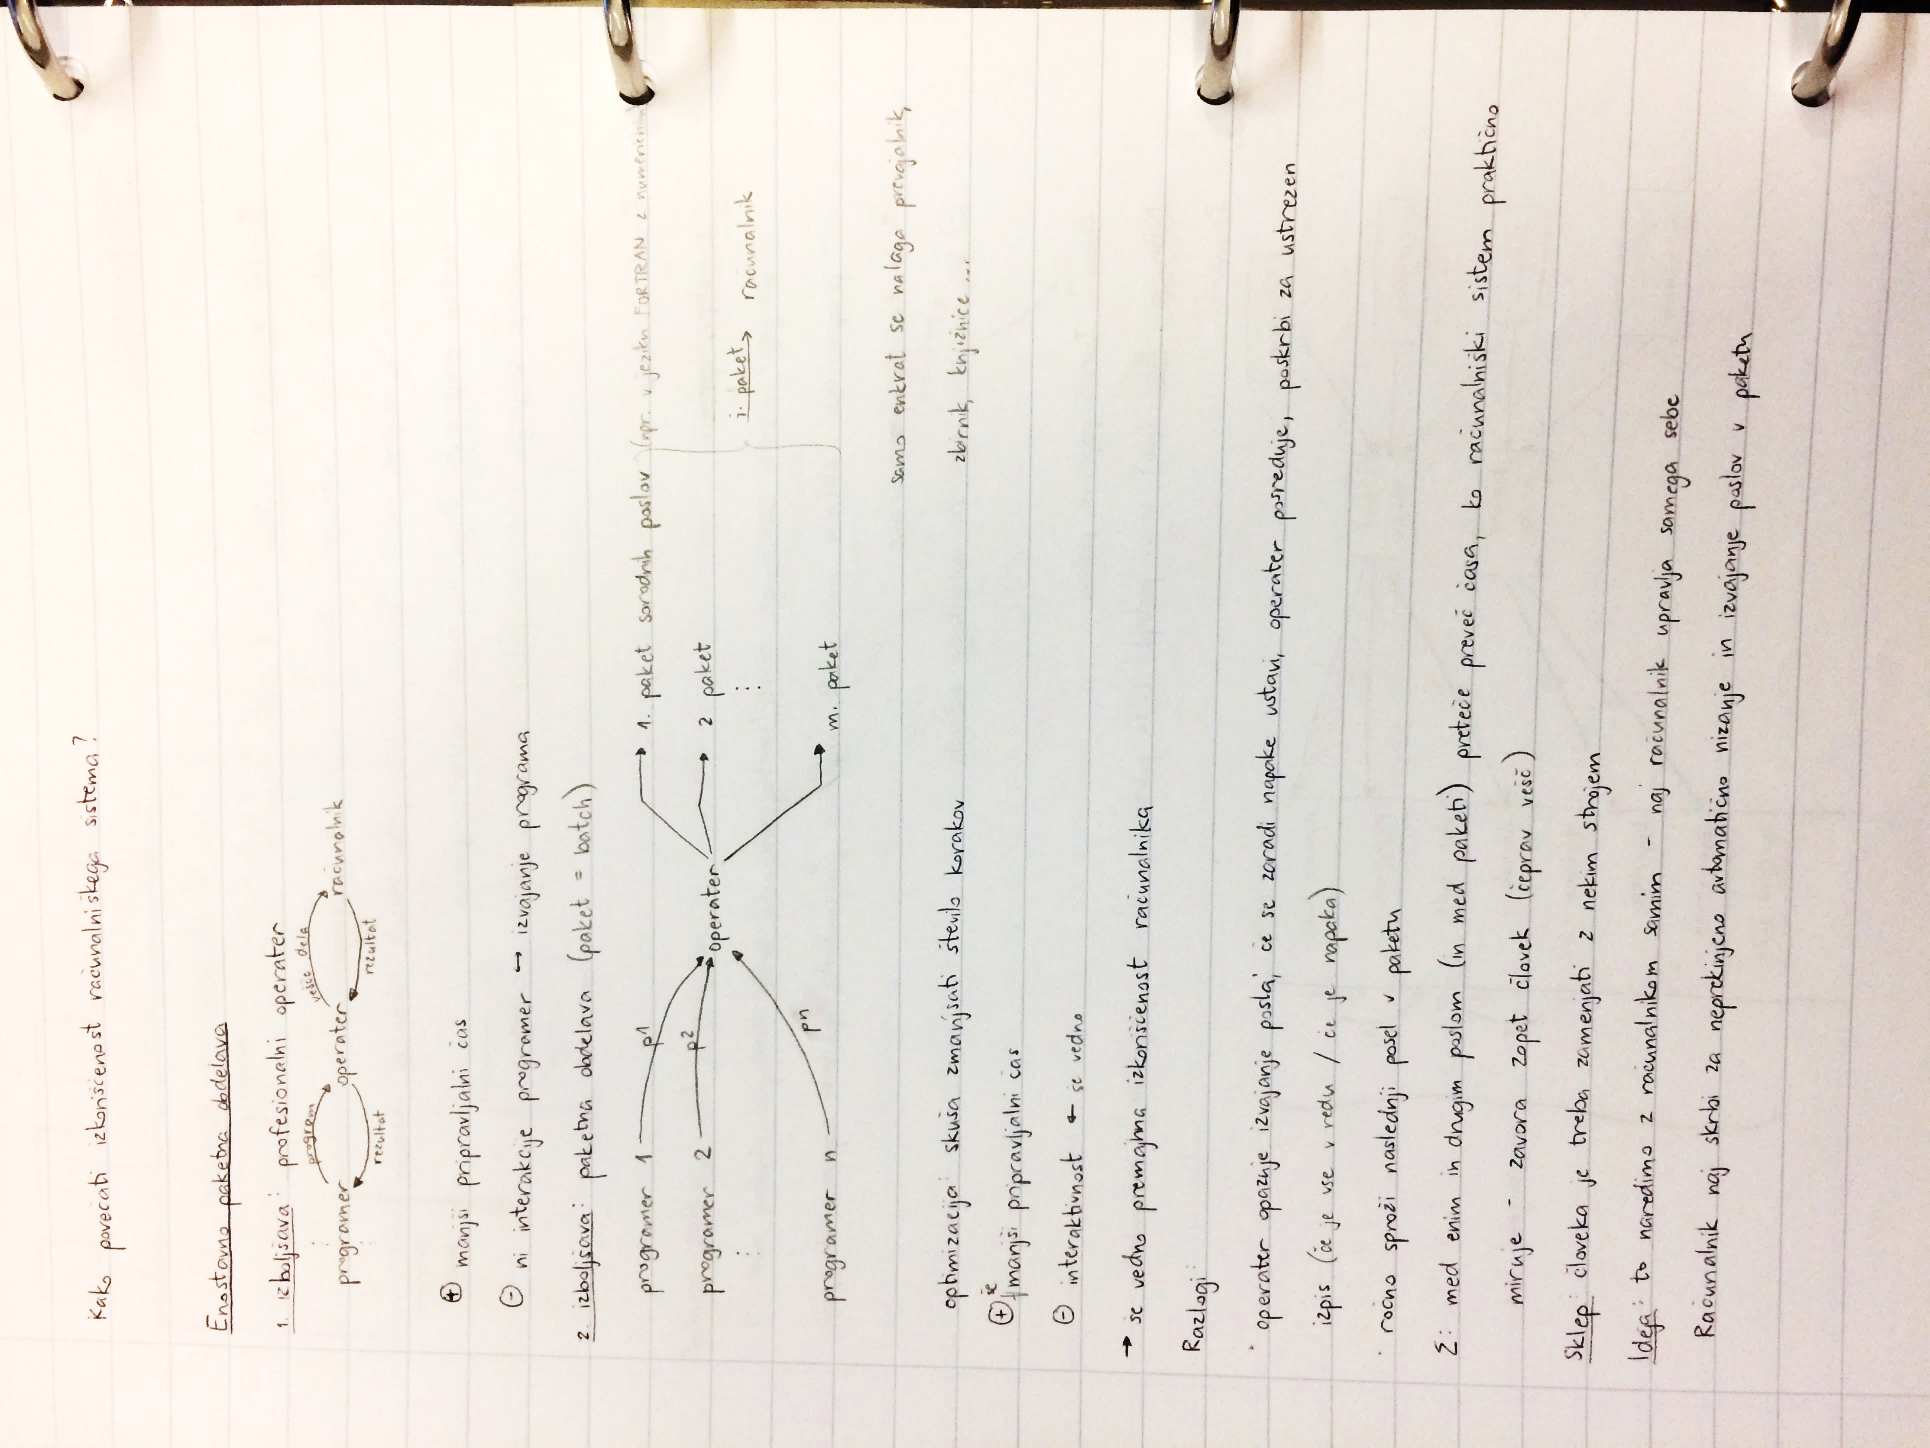 Kako povečati izkoriščenost računalniškega sistema?
Enostavna paketna obdelava
1. izboljšava: profesionalni operater
program
vešč dela
programer operater računalnik
rezultat
rezultat
⊕ manjši pripravljalni čas
⊖ ni interakcije programer ↔ izvajanje programa
2. izboljšava: paketna obdelava (paket = batch)
programer 1 p1 1. paket sorodnih poslov (npr. v jeziku FORTRAN z
programer 2 p2 operater 2 paket
⋮ ⋮ i. paket → računalnik
programer n pn m. paket
samo enkrat se nalaga prevajalnik,
optimizacija: skuša zmanjšati število korakov zbirnik, knjižnice...
⊕ še manjši pripravljalni čas
⊖ interaktivnost ← še vedno
→ še vedno premajhna izkoriščenost računalnika
Razlogi:
· operater opazuje izvajanje posla, če se zaradi napake ustavi, operater posreduje, poskrbi za ustrezen
izpis (če je vse v redu / če je napaka)
· ročno sproži naslednji posel v paketu
Σ: med enim in drugim poslom (in med paketi) preteče preveč časa, ko računalniški sistem praktično
miruje - zavora zopet človek (čeprav vešč)
Sklep: človeka je treba zamenjati z nekim strojem
Ideja: to naredimo z računalnikom samim - naj računalnik upravlja samega sebe
Računalnik naj skrbi za neprekinjeno avtomatično nizanje in izvajanje poslov v paketu